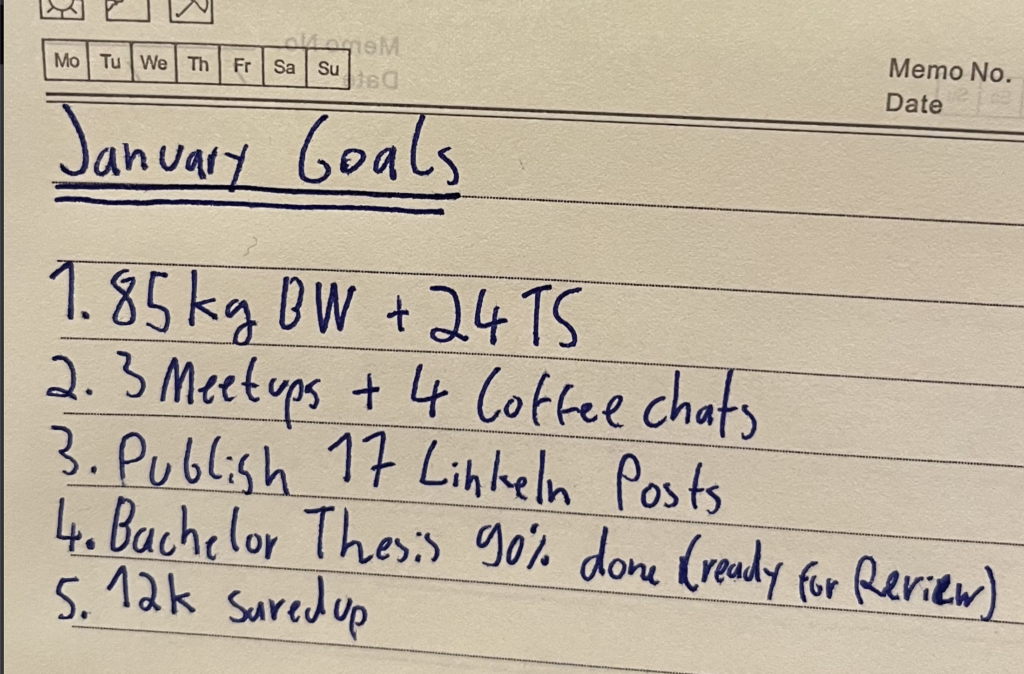 Mo Tu We Th Fr Sa Su
Memo No.
Date
January Goals
1. 85kg BW + 24 TS
2. 3 Meetups + 4 Coffee chats
3. Publish 17 LinkeIn Posts
4. Bachelor Thesis 90% done (ready for Review)
5. 12k saved up